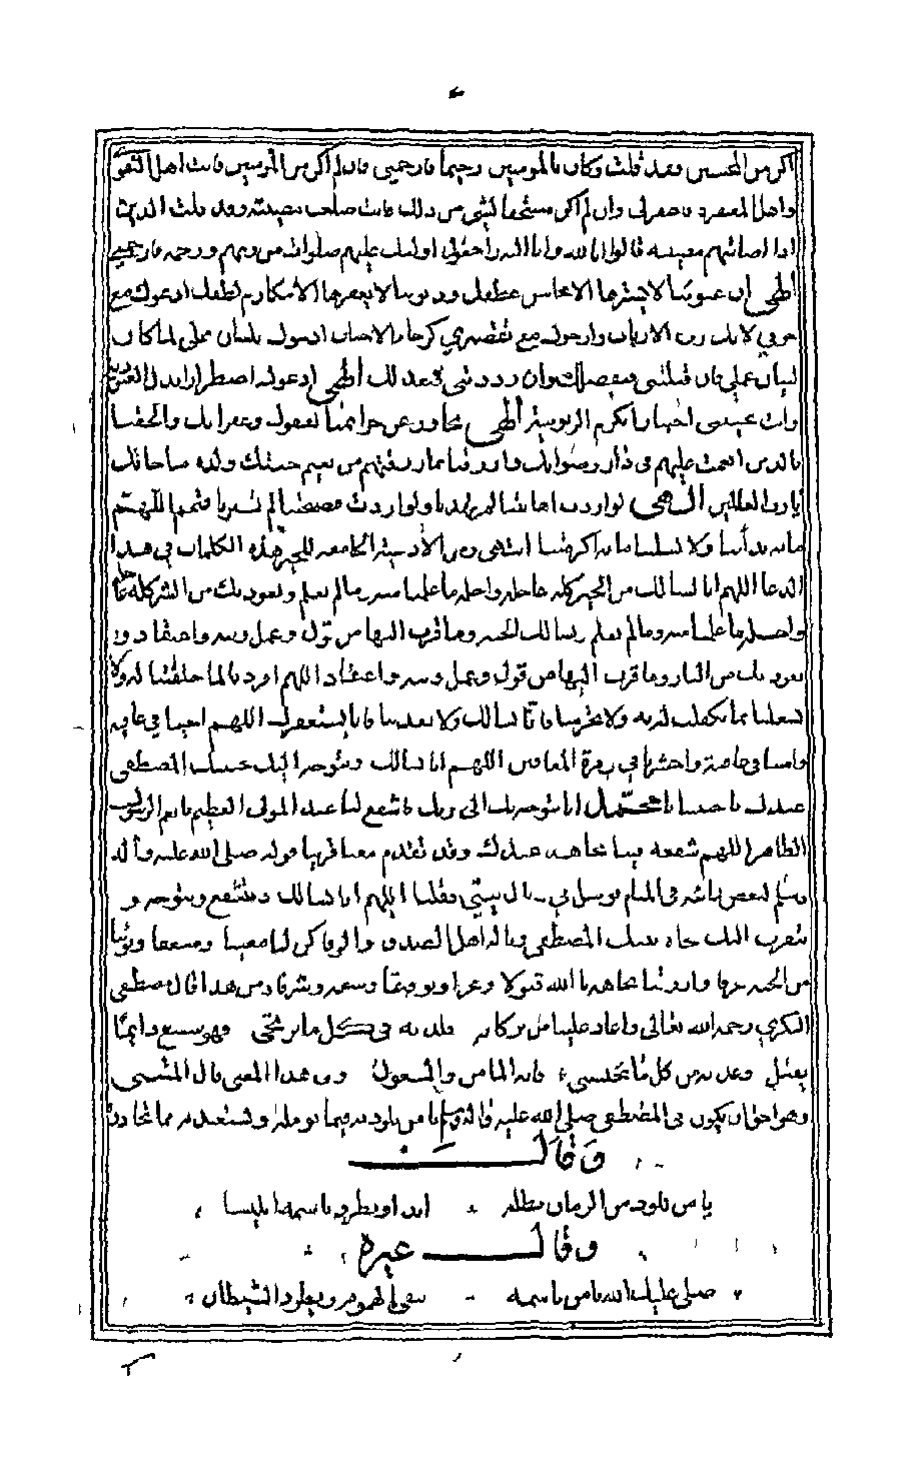 اكن من المحسنين فقد قلت وكان بالمومنين رحيما فارحمني فان لم اكن من المومنين فانت اهل التقوى
واهل المغفرة فاغفر لي وان لم اكن مستحقا لشي من ذلك فانت صاحب مصيبة وقد قلت الذين
اذا اصابتهم مصيبة قالوا انا لله وانا اليه راجعون اوليك عليهم صلوات من ربهم ورحمة فارحمني
الهي ان عيوبنا لا يسترها الا محاسن عطفك وذنوبنا لا يغفرها الا مكارم لطفك ادعوك مع
خوفي لانك رب الارباب وارجوك مع تقصيري كرجا الاحباب ادعوك بلسان عملي لما كل
لسان عملي فان قبلتني فبفضلك وان رددتني فبعدلك الهي ادعوك اضطرارا بذل العبودية
وانت تجيبني اختيارا بكرم الربوبية الهي تجاوز عن جرايمنا بعفوك وغفرانك والحقنا
بالذين انعمت عليهم في دار رضوانك وارزقنا مما رزقتهم من نعيم جنتك ولذة مناجاتك
يا رب العالمين الهي لو اردت اهانتنا لم تهدنا ولو اردت فضيحتنا لم تسترنا فتمم اللهم
ما به بدأتنا ولا تسلبنا ما به اكرمتنا انتهى ومن الادعية الجامعة للخير هذه الكلمات في هذا
الدعا اللهم انا نسالك من الخير كله عاجله واجله ما علمنا منه وما لم نعلم ونعوذ بك من الشر كله عاجله
واجله ما علمنا منه وما لم نعلم ونسالك الجنة وما قرب اليها من قول وعمل ونية واعتقاد و
نعوذ بك من النار وما قرب اليها من قول وعمل ونية واعتقاد اللهم افردنا لما خلقتنا له ولا
تشغلنا بما تكفلت لنا به ولا تحرمنا فانا نسالك ولا تعذبنا فانا نستغفرك اللهم احينا في عافية
وامتنا في عافية واحشرنا في زمرة اللهم انا نسالك ونتوجه اليك بحبيبك المصطفى
عندك يا حبيبنا يا محمد انا نتوجه بك الى ربك فاشفع لنا عند المولى العظيم يا نعم الرسول
الطاهر اللهم شفعه فينا بجاهه عندك وقد تقدم معنا قريبا قوله صلى الله عليه وآله
وسلم لبعض في المنام توسل بي اهل بيتي فقلنا اللهم انا نسالك ونستشفع ونتوجه و
نتقرب اليك بجاه نبيك المصطفى وباله اهل الصدق والوفا كن لنا معينا ومسعفا وبوئنا
من الجنة غرفا وارزقنا بجاهه يا الله قبولا وعزا وسعة وشرفا ومن هذا قال مصطفى
البكري رحمه الله تعالى واعاد علينا من بركاته ولذ به في كل ما ترتجي فهو شفيع دايما
يقبل وعذ به من كل ما تختشي فانه المامن والمعقل وفي هذا المعنى قال المتنبي
وهو احق ان يكون في المصطفى صلى الله عليه وآله وسلم يا من الوذ به فيما اومله واستعيذ به مما احاذر
وقال
يا من نلوذ من الزمان بظله ابدا ونطرد باسمه ابليسا
وقال غيره
صلى عليك الله يا من باسمه تنفى الهموم ويطرد الشيطان